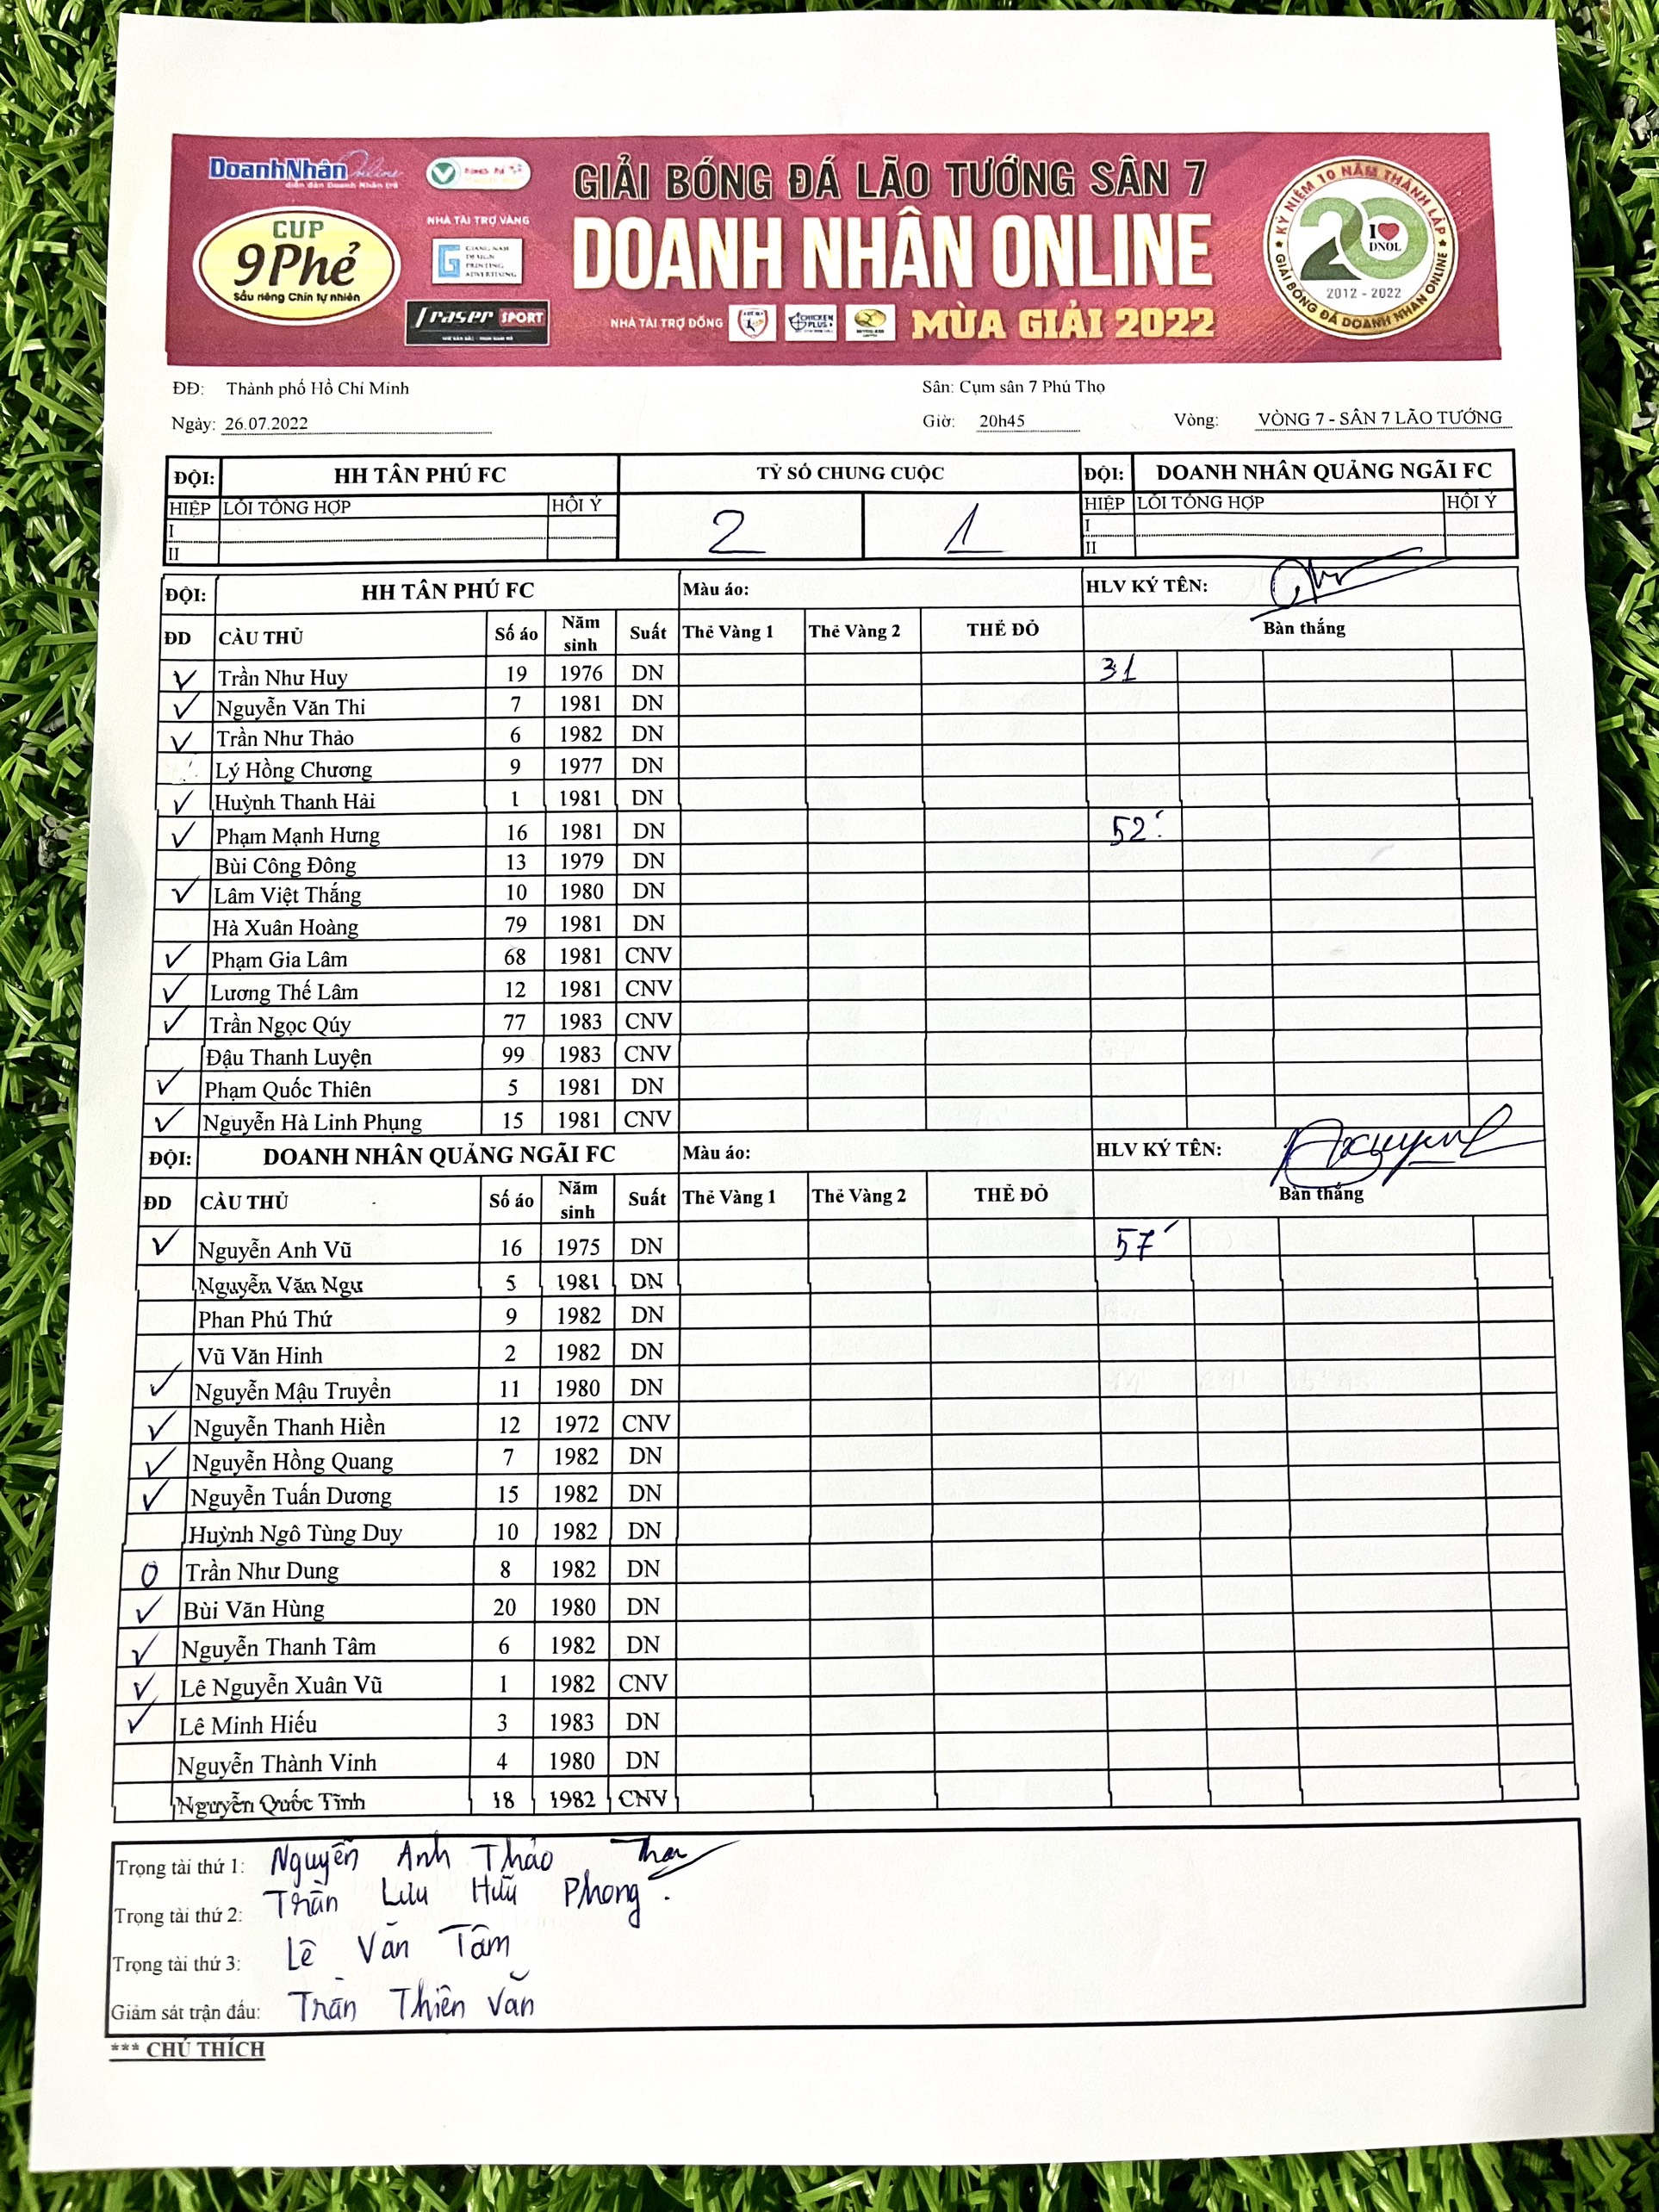 DoanhNhân Online
diễn đàn Doanh Nhân trẻ
CUP
9Phẻ
Sầu riêng Chín tự nhiên
NHÀ TÀI TRỢ VÀNG
GIANG NAM
DESIGN
PRINTING
ADVERTISING
Fraser SPORT
GIẢI BÓNG ĐÁ LÃO TƯỚNG SÂN 7
DOANH NHÂN ONLINE
NHÀ TÀI TRỢ ĐỒNG
CHICKEN PLUS
MÙA GIẢI 2022
KỶ NIỆM 10 NĂM THÀNH LẬP
20
I ❤ DNOL
2012 - 2022
GIẢI BÓNG ĐÁ DOANH NHÂN ONLINE
ĐĐ: Thành phố Hồ Chí Minh Sân: Cụm sân 7 Phú Thọ
Ngày: 26.07.2022 Giờ: 20h45 Vòng: VÒNG 7 - SÂN 7 LÃO TƯỚNG
ĐỘI: HH TÂN PHÚ FC TỶ SỐ CHUNG CUỘC ĐỘI: DOANH NHÂN QUẢNG NGÃI FC
HIỆP LỖI TỔNG HỢP HỘI Ý 2 1 HIỆP LỖI TỔNG HỢP HỘI Ý
I I
II II
ĐỘI: HH TÂN PHÚ FC Màu áo: HLV KÝ TÊN:
ĐD CẦU THỦ Số áo Năm sinh Suất Thẻ Vàng 1 Thẻ Vàng 2 THẺ ĐỎ Bàn thắng
✓ Trần Như Huy 19 1976 DN 31
✓ Nguyễn Văn Thi 7 1981 DN
✓ Trần Như Thảo 6 1982 DN
Lý Hồng Chương 9 1977 DN
✓ Huỳnh Thanh Hải 1 1981 DN
✓ Phạm Mạnh Hưng 16 1981 DN 52'
Bùi Công Đông 13 1979 DN
✓ Lâm Việt Thắng 10 1980 DN
Hà Xuân Hoàng 79 1981 DN
✓ Phạm Gia Lâm 68 1981 CNV
✓ Lương Thế Lâm 12 1981 CNV
✓ Trần Ngọc Qúy 77 1983 CNV
Đậu Thanh Luyện 99 1983 CNV
✓ Phạm Quốc Thiên 5 1981 DN
✓ Nguyễn Hà Linh Phụng 15 1981 CNV
ĐỘI: DOANH NHÂN QUẢNG NGÃI FC Màu áo: HLV KÝ TÊN:
ĐD CẦU THỦ Số áo Năm sinh Suất Thẻ Vàng 1 Thẻ Vàng 2 THẺ ĐỎ Bàn thắng
✓ Nguyễn Anh Vũ 16 1975 DN 57'
Nguyễn Văn Ngư 5 1981 DN
Phan Phú Thứ 9 1982 DN
Vũ Văn Hinh 2 1982 DN
✓ Nguyễn Mậu Truyền 11 1980 DN
✓ Nguyễn Thanh Hiền 12 1972 CNV
✓ Nguyễn Hồng Quang 7 1982 DN
✓ Nguyễn Tuấn Dương 15 1982 DN
Huỳnh Ngô Tùng Duy 10 1982 DN
0 Trần Như Dung 8 1982 DN
✓ Bùi Văn Hùng 20 1980 DN
✓ Nguyễn Thanh Tâm 6 1982 DN
✓ Lê Nguyễn Xuân Vũ 1 1982 CNV
✓ Lê Minh Hiếu 3 1983 DN
Nguyễn Thành Vinh 4 1980 DN
Nguyễn Quốc Tĩnh 18 1982 CNV
Trọng tài thứ 1: Nguyễn Anh Thảo
Trọng tài thứ 2: Trần Lưu Hữu Phong.
Trọng tài thứ 3: Lê Văn Tâm
Giám sát trận đấu: Trần Thiên Văn
*** CHÚ THÍCH